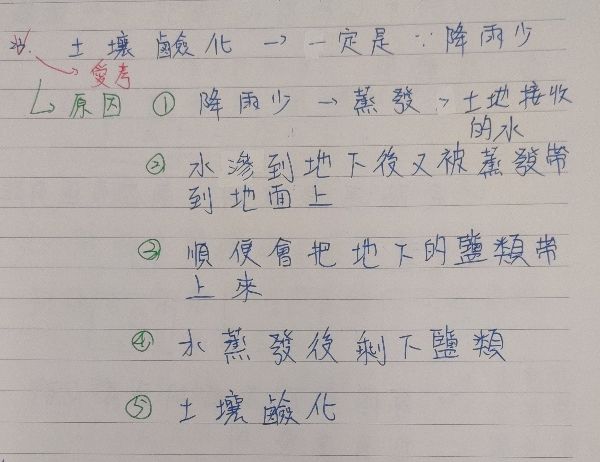 土壤鹼化 → 一定是 ∵ 降雨少
愛考
原因 ① 降雨少 → 蒸發 > 土地接收
的水
② 水滲到地下後又被蒸發帶
到地面上
③ 順便會把地下的鹽類帶
上來
④ 水蒸發後剩下鹽類
⑤ 土壤鹼化